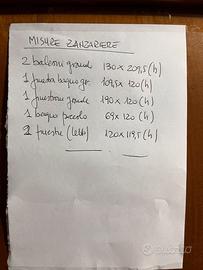 MISURE ZANZARIERE
2 balconi grandi 130 x 209,5 (h)
1 finestra bagno gr. 109,5 x 120 (h)
1 finestrone grande 190 x 120 (h)
1 bagno piccolo 69 x 120 (h)
2 finestre (letto) 120 x 119,5 (h)
subito.it